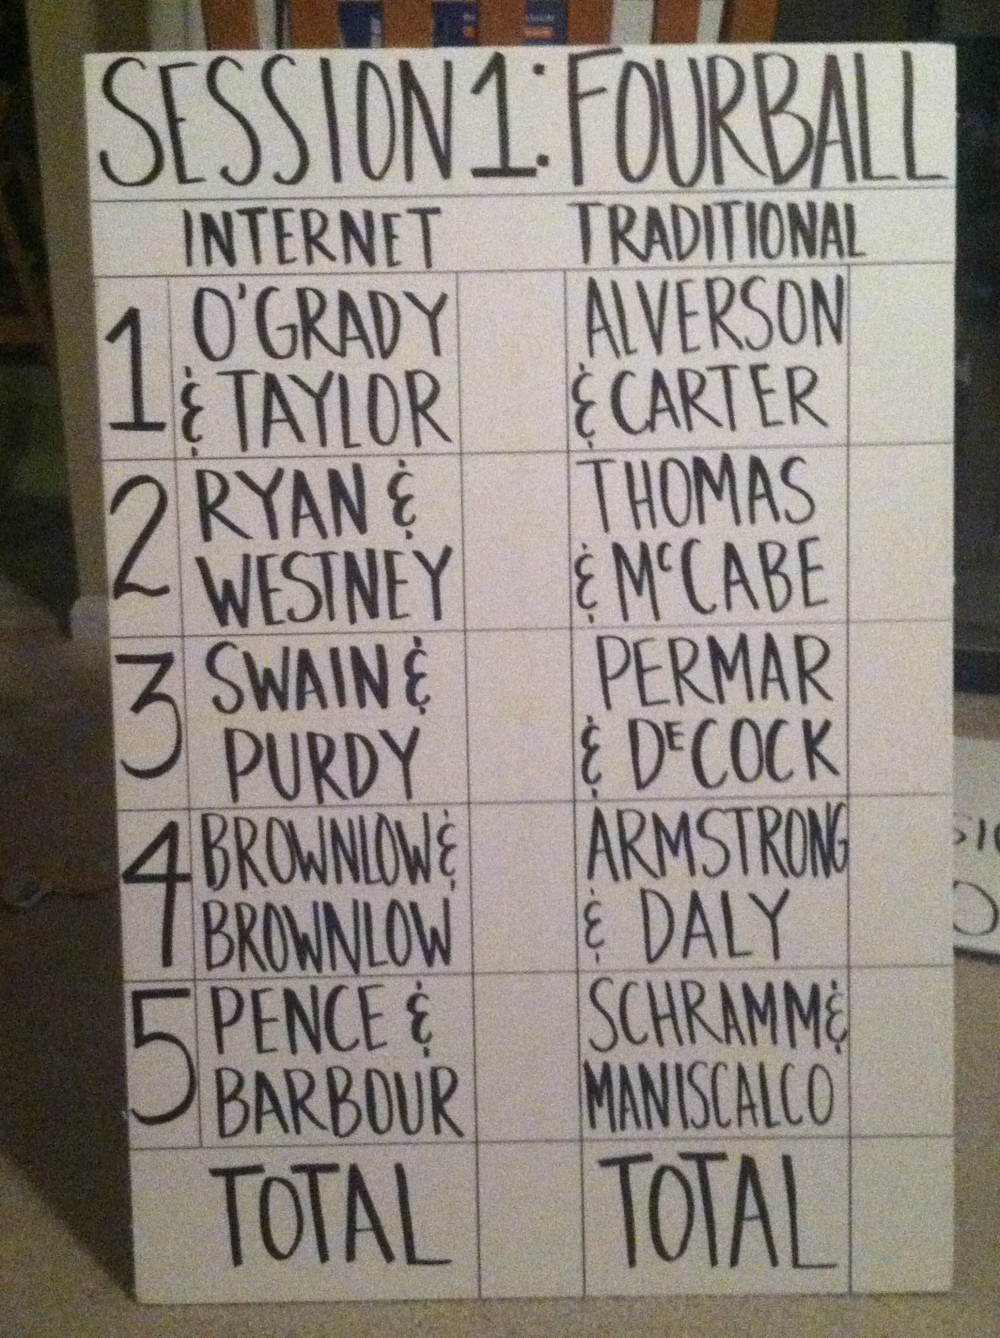 SESSION 1: FOURBALL
INTERNET TRADITIONAL
1 O'GRADY ALVERSON
& TAYLOR & CARTER
2 RYAN & THOMAS
WESTNEY & McCABE
3 SWAIN & PERMAR
PURDY & DECOCK
4 BROWNLOW & ARMSTRONG
BROWNLOW & DALY
5 PENCE & SCHRAMM &
BARBOUR MANISCALCO
TOTAL TOTAL